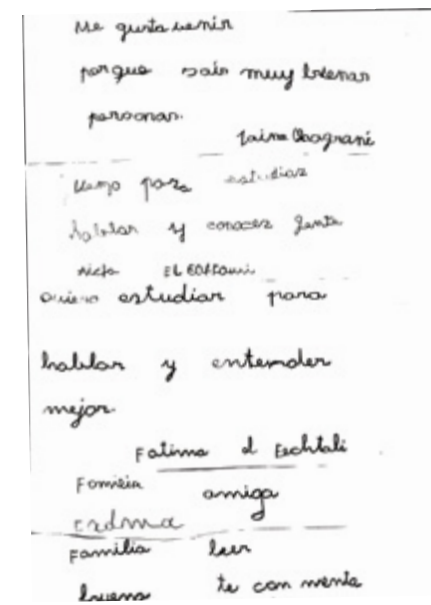 Me gusta venir
porque sois muy buenas
personas.
Vengo para estudiar
hablar y conocer gente
EL
Quiero estudiar para
hablar y entender
mejor.
Fatima el Eechtali
Familia amiga
Familia leer
buena te con menta